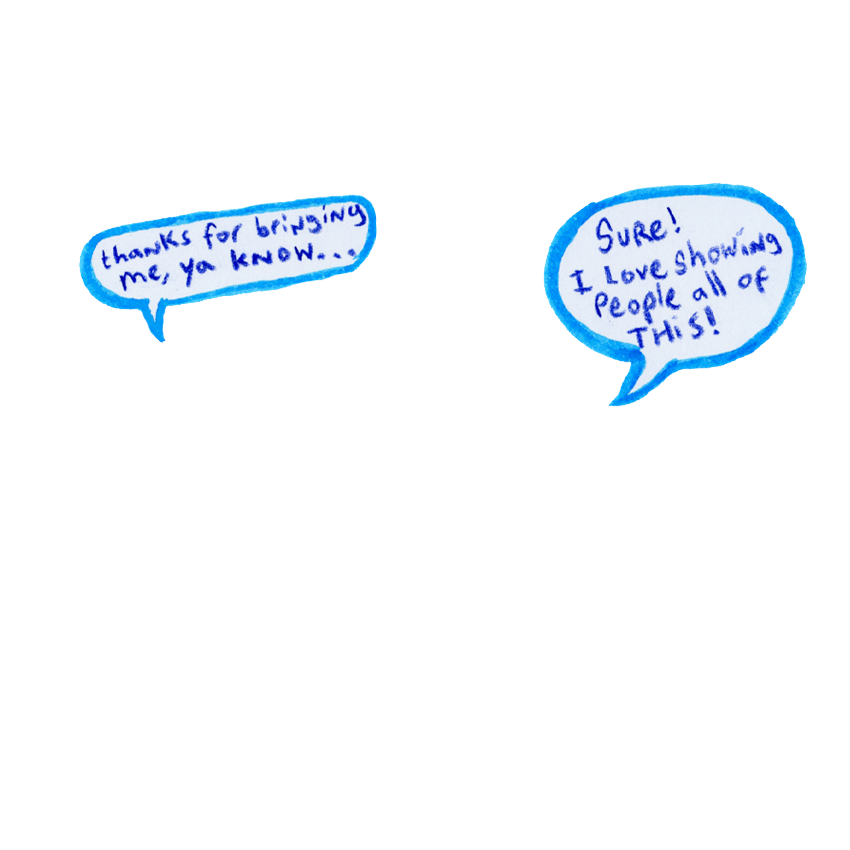 thanks for bringing
me, ya KNOW...
SURE!
I Love showiNg
People all of
THiS!